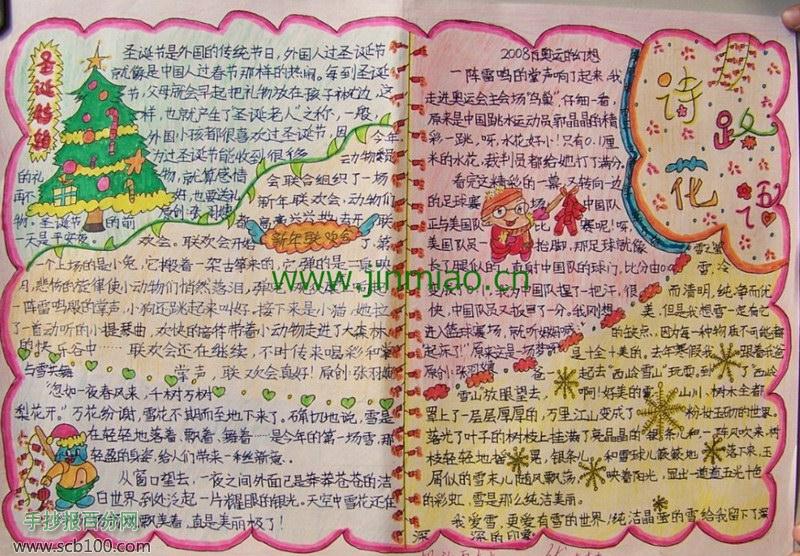 圣诞节是外国的传统节日,外国人过圣诞节
就像是中国人过春节那样的热闹。每到圣诞
节,父母就会早起把礼物放在孩子枕边,这
样,也就产生了“圣诞老人”之称,一般,
外国小孩都很喜欢过圣诞节,因
为过圣诞节能收到很多
的礼物,就算感情
再不好,也要送礼
物。圣诞节的前
一天是平安夜
原创:张羽
今年
动物
会联合组织了一场
新年联欢会,动物们
高高兴兴地去开联
欢会。联欢会开始了,第
新年联欢会
一个上场的是小兔,它搬着一架古筝来的,它弹的是二泉映
月,悲伤的旋律使小动物们悄然落泪,弹
一阵雷鸣般的掌声,小狗还跳起来叫好。接下来是小猫,她拉
了一首动听的小提琴曲,欢快的音符带着小动物走进了大森林
的快乐谷中……联欢会还在继续,不时传来喝彩和掌
声,联欢会真好!原创:张羽
与雪共舞
“忽如一夜春风来,千树万树
梨花开。”万花纷谢,雪花不期而至地下来了。确切地说,雪是
在轻轻地落着、飘着、舞着……是今年的第一场雪,那
轻盈的身姿给人们带来一种新
从窗口望去,一夜之间外面已是莽莽苍苍的洁
白世界,到处泛起一片耀眼的银光。天空中雪花还在
飘美着,真是美丽极了!
2008年奥运的幻想
一阵雷鸣的掌声响了起来,我
走进奥运会主会场“鸟巢”仔细一看,
原来是中国跳水运动员郭晶晶的精
彩一跳,呀,水花好小!只有0.1厘
米的水花,裁判员都给她打了满分。
看完这精彩的一幕,又转向一边
的足球赛场,中国队
正与美国队比赛呢!呀,
美国队员一抬脚,那足球就像
长了眼似的
中国队的球门,比分由0
我为中国队捏了一把汗,很
中国队员又扳回了一分。我刚想
进入篮球赛场,就听
起床了!”原来这是一场梦呀
原创:张羽
诗路花
雪之
雪,冷
而清明,纯净而优
美,但是我想雪一定有它
的缺点,因为每一种物质不可能都
是十全十美的,去年寒假我跟着爸
爸一起去“西岭雪山”玩耍,到了“西岭
雪山放眼望去,啊!好美的雪,山川、树木全都
罩上了一层层厚厚的,万里江山变成了粉妆玉砌的世界。
落光了叶子的树枝上挂满了亮晶晶的银条儿和一阵风吹来,树
枝轻轻地摇晃,银条儿和雪球儿簌簌地落下来,玉
屑似的雪末儿随风飘荡,映着阳光,显出一道道五光十色
的彩虹,雪是那么纯洁美丽。
我爱雪,更爱有雪的世界!纯洁晶莹的雪给我留下了深
深的印象。
www.jinmiao.cn
手抄报百分网
www.scb100.com